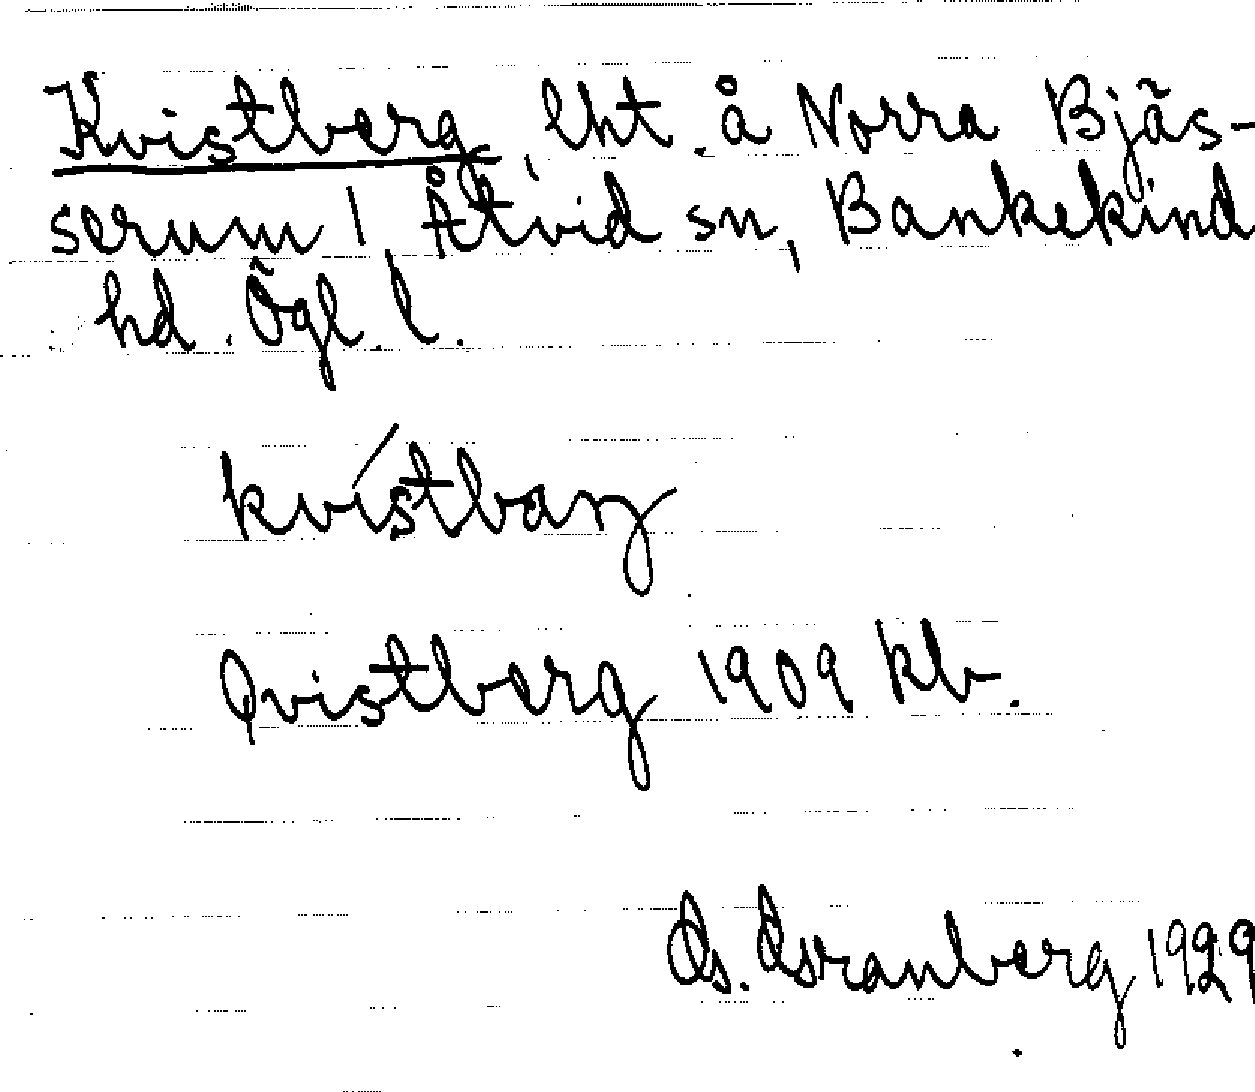 Kvistberg, lht. å Norra Bjäs-
serum 1 Åtvid sn, Bankekind
hd. Ögl. l.
kvístbarʒ
Qvistberg 1909 kb.
G. Granberg 1929